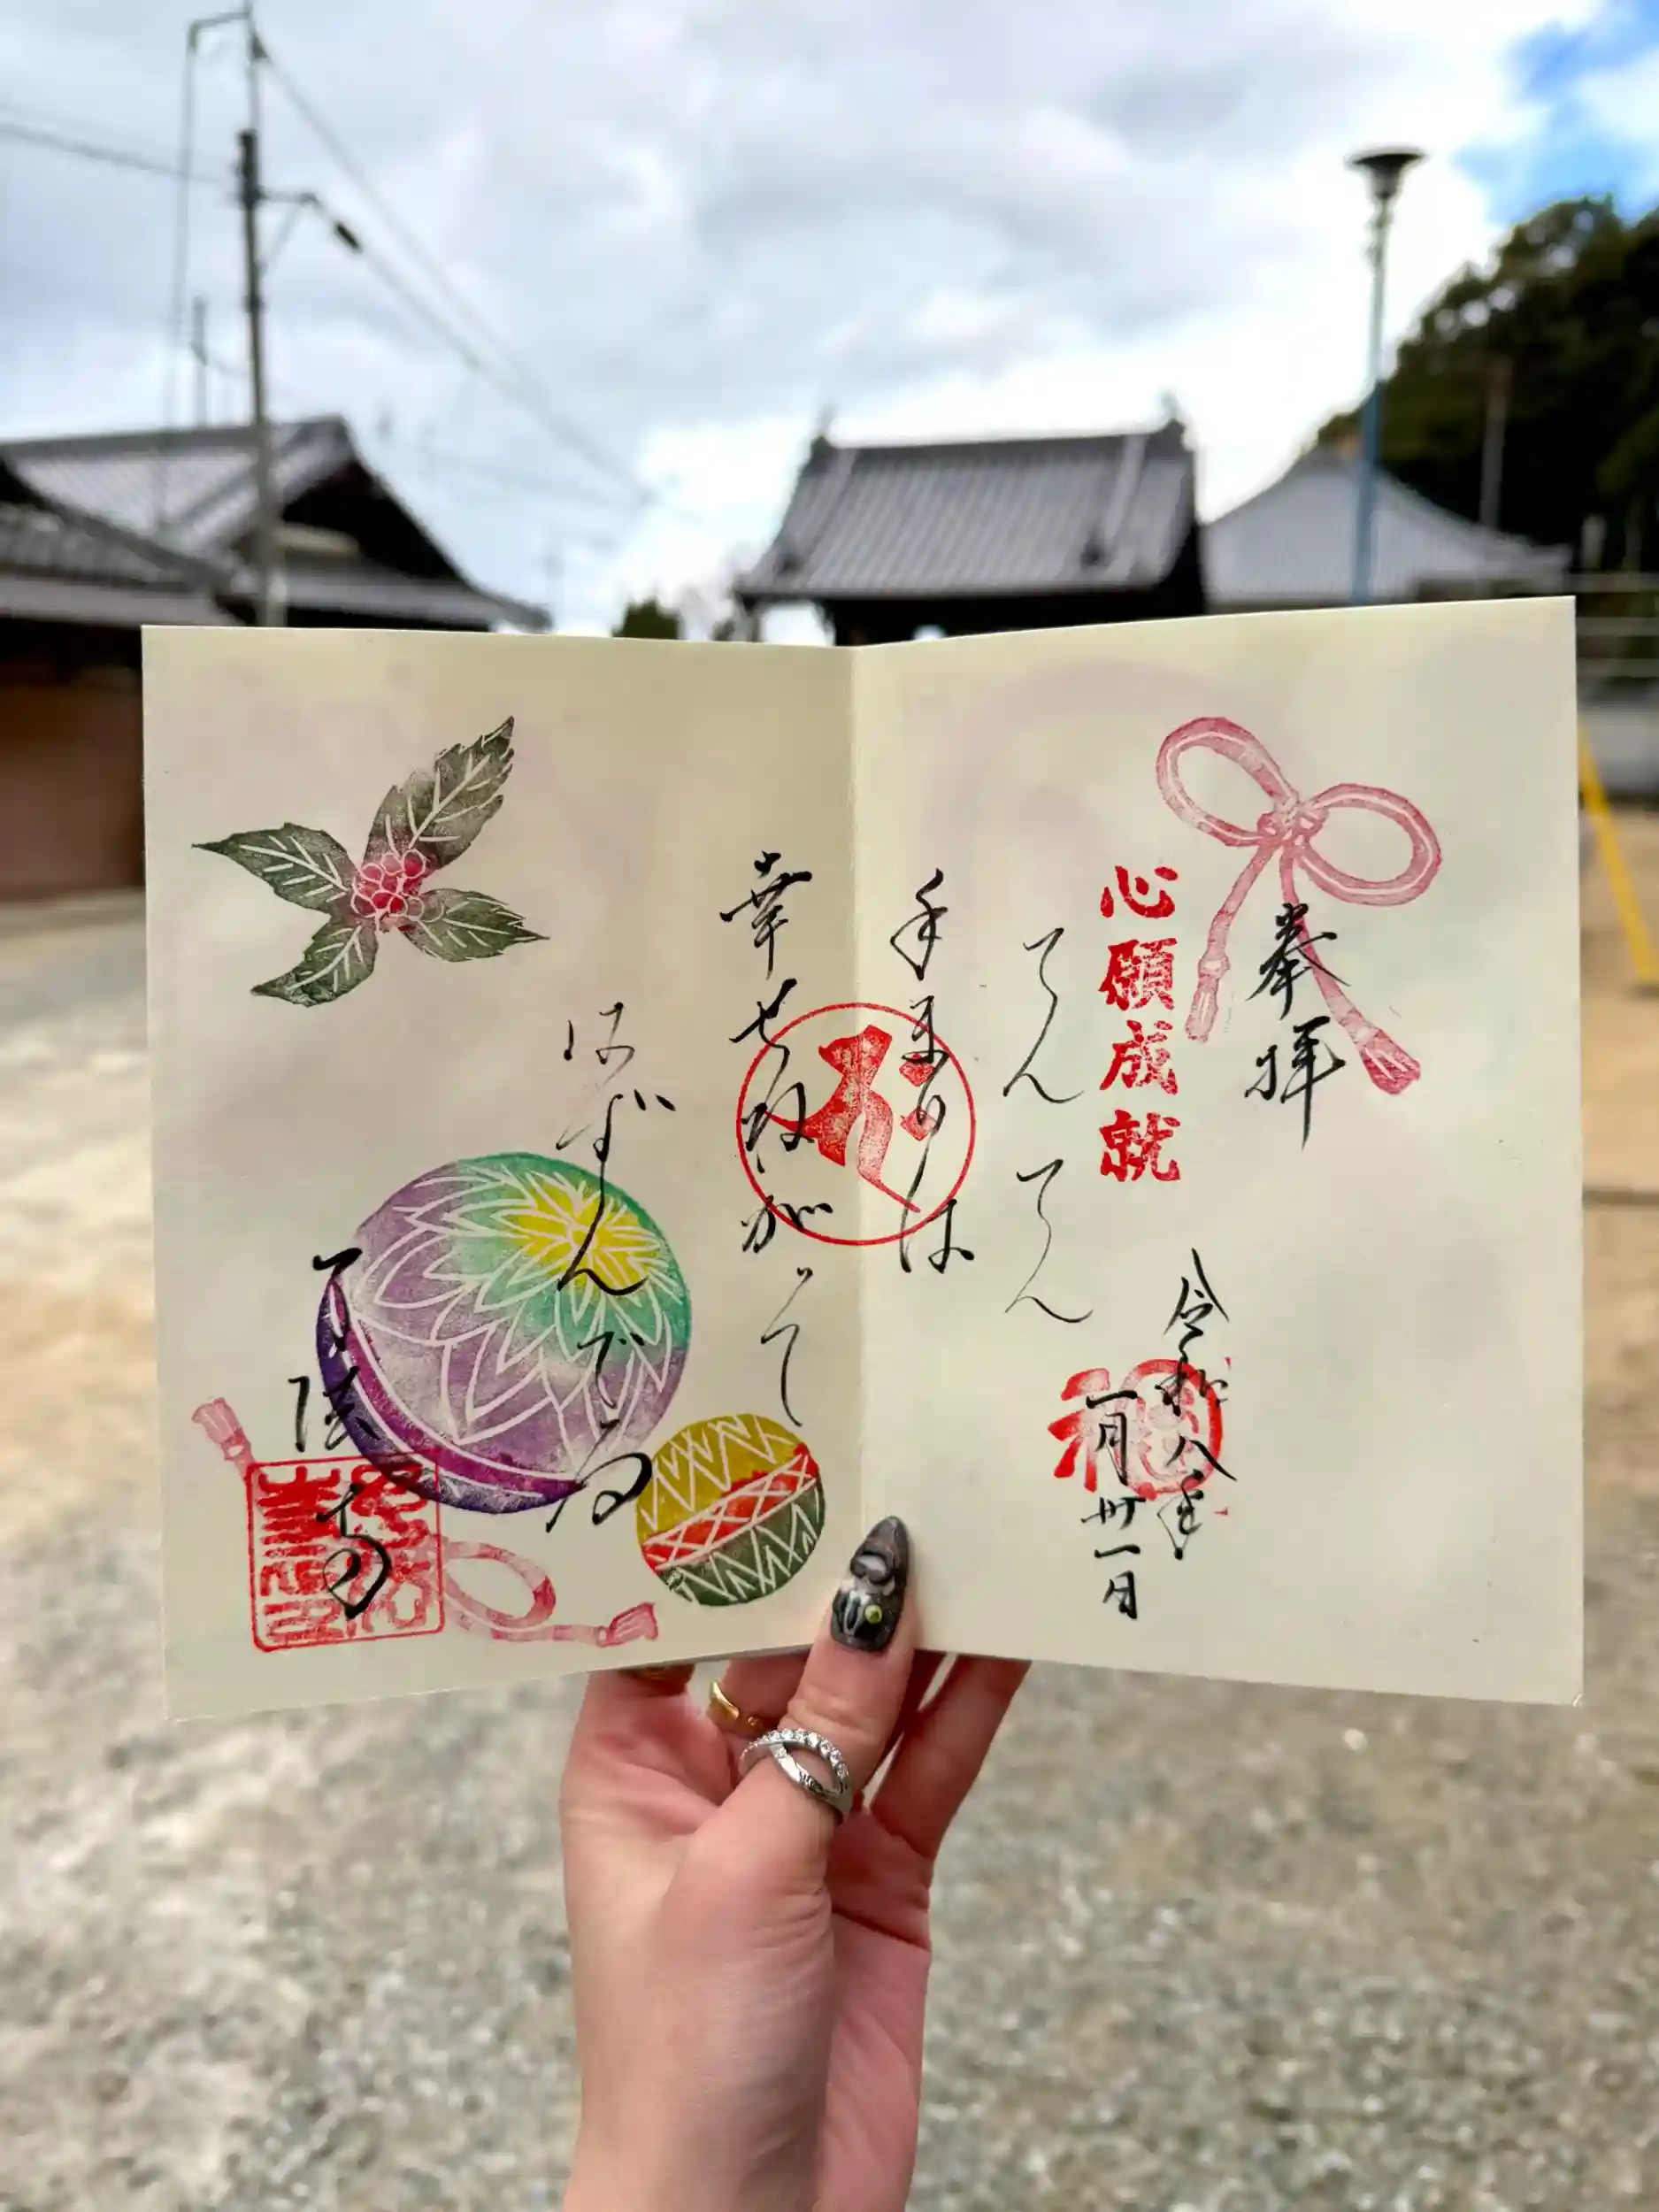 奉拝
心願成就
令和八年
一月卅一日
福
てんてん
手まりは
幸せねがって
はずんでる